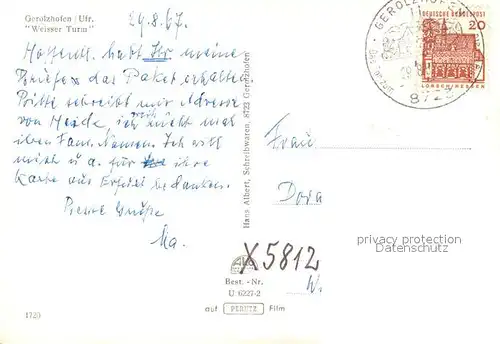 Gerolzhofen Ufr.
"Weisser Turm"
29.8.67.
Hoffentl. habt Ihr meine
Briefe u das Paket erhalten.
Bitte schreibt mir Adresse
von ich nicht mal
ihren Fam. Namen. Ich will
mich u a. für ihre
Karte aus bedanken.
Grüße
Ma.
Frau
Dora
Hans Albert, Schreibwaren, 8723 Gerolzhofen
GEROLZHOFEN
8723
DEUTSCHE BUNDESPOST
20
LORSCH/HESSEN
privacy protection
datenschutz
X5812
W.
Best.-Nr.
U 6227-2
auf PERUTZ Film
1720